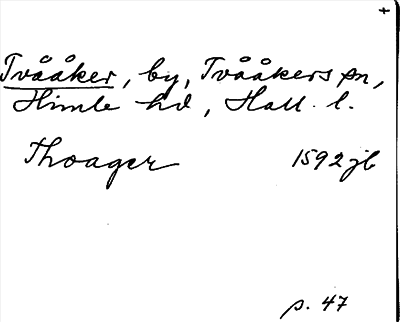 +
Tvååker, by, Tvååkers sn,
Himle hd, Hall. l.
Thoager 1592 jb
s. 47